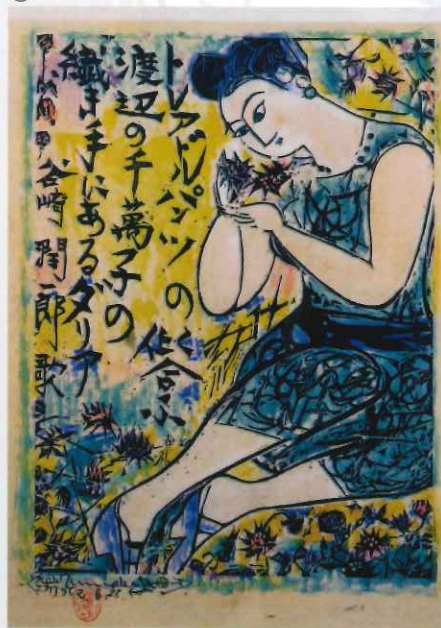 トレアドルパンツのよく似合ふ
渡辺の千萬子の
繊き手にあるダリア
谷崎潤一郎歌